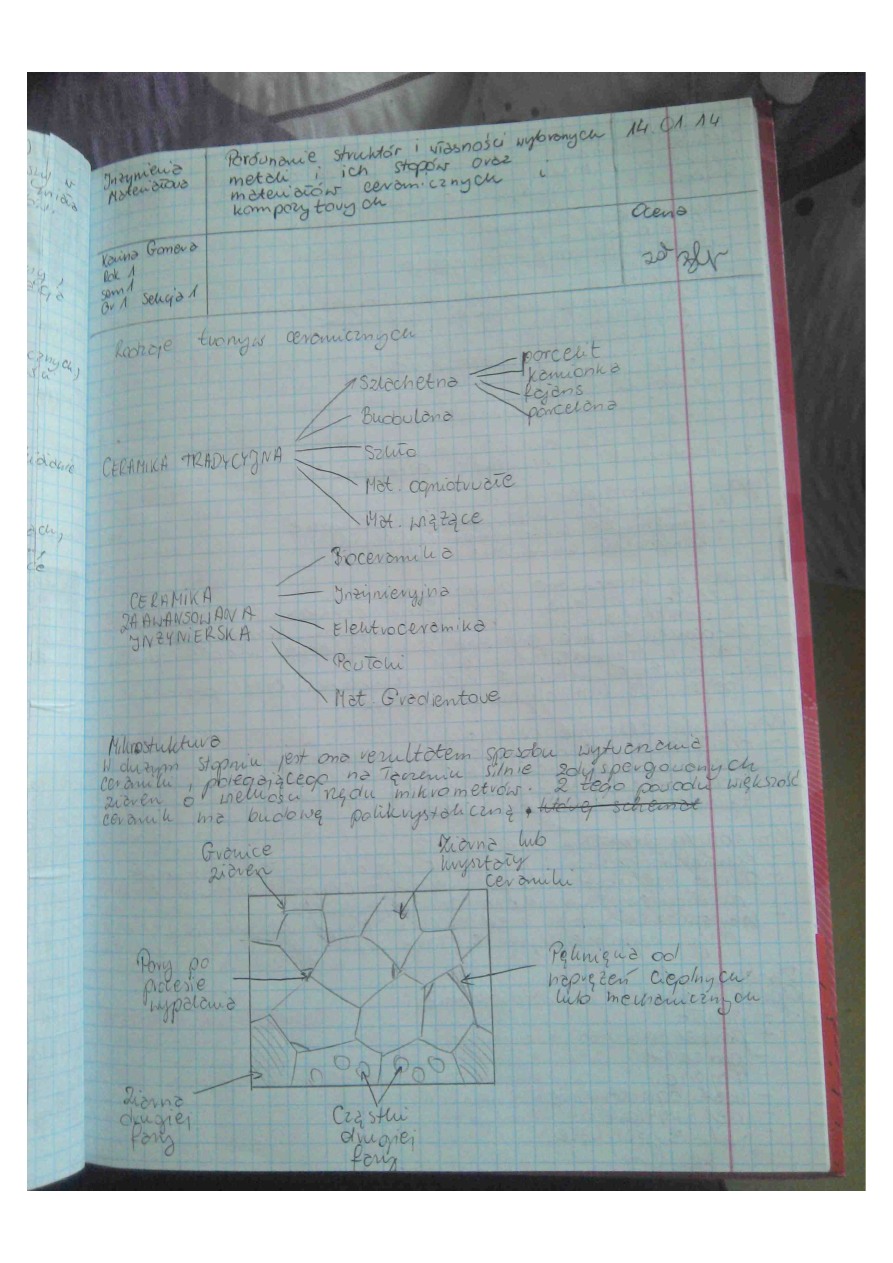 Inżynieria
Materiałowa
Porównanie struktór i własności wybranych
metali i ich stopów oraz
materiałów ceramicznych i
kompozytowych
14.01.14
Ocena
Rok 1
sem 1
Gr 1 Sekcja 1
Rodzaje tworzyw ceramicznych
CERAMIKA TRADYCYJNA
Szlachetna
porcelit
kamionka
fajans
porcelana
Budowlana
Szkło
Mat. ogniotrwałe
Mat. wiążące
CERAMIKA
ZAAWANSOWANA
INŻYNIERSKA
Bioceramika
Inżynieryjna
Elektroceramika
Powłoki
Mat. Gradientowe
Mikrostuktura
W dużym stopniu jest ona rezultatem sposobu wytwarzania
ceramiki, polegającego na łączeniu silnie zdyspergowanych
ziaren o wielkości rzędu mikrometrów. Z tego powodu większość
ceramik ma budowę polikrystaliczną, której schemat
Granice
ziaren
Ziarna lub
kryształy
ceramiki
Pory po
procesie
wypalania
Pęknięcia od
naprężeń cieplnych
lub mechanicznych
Ziarna
drugiej
fazy
Cząstki
drugiej
fazy